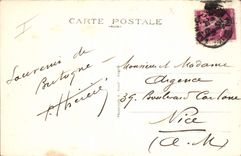 I
CARTE POSTALE
Souvenir de
Bretagne
Monsieur et Madame
Argence
39, Boulevard Carlone
Nice
(A.-M)